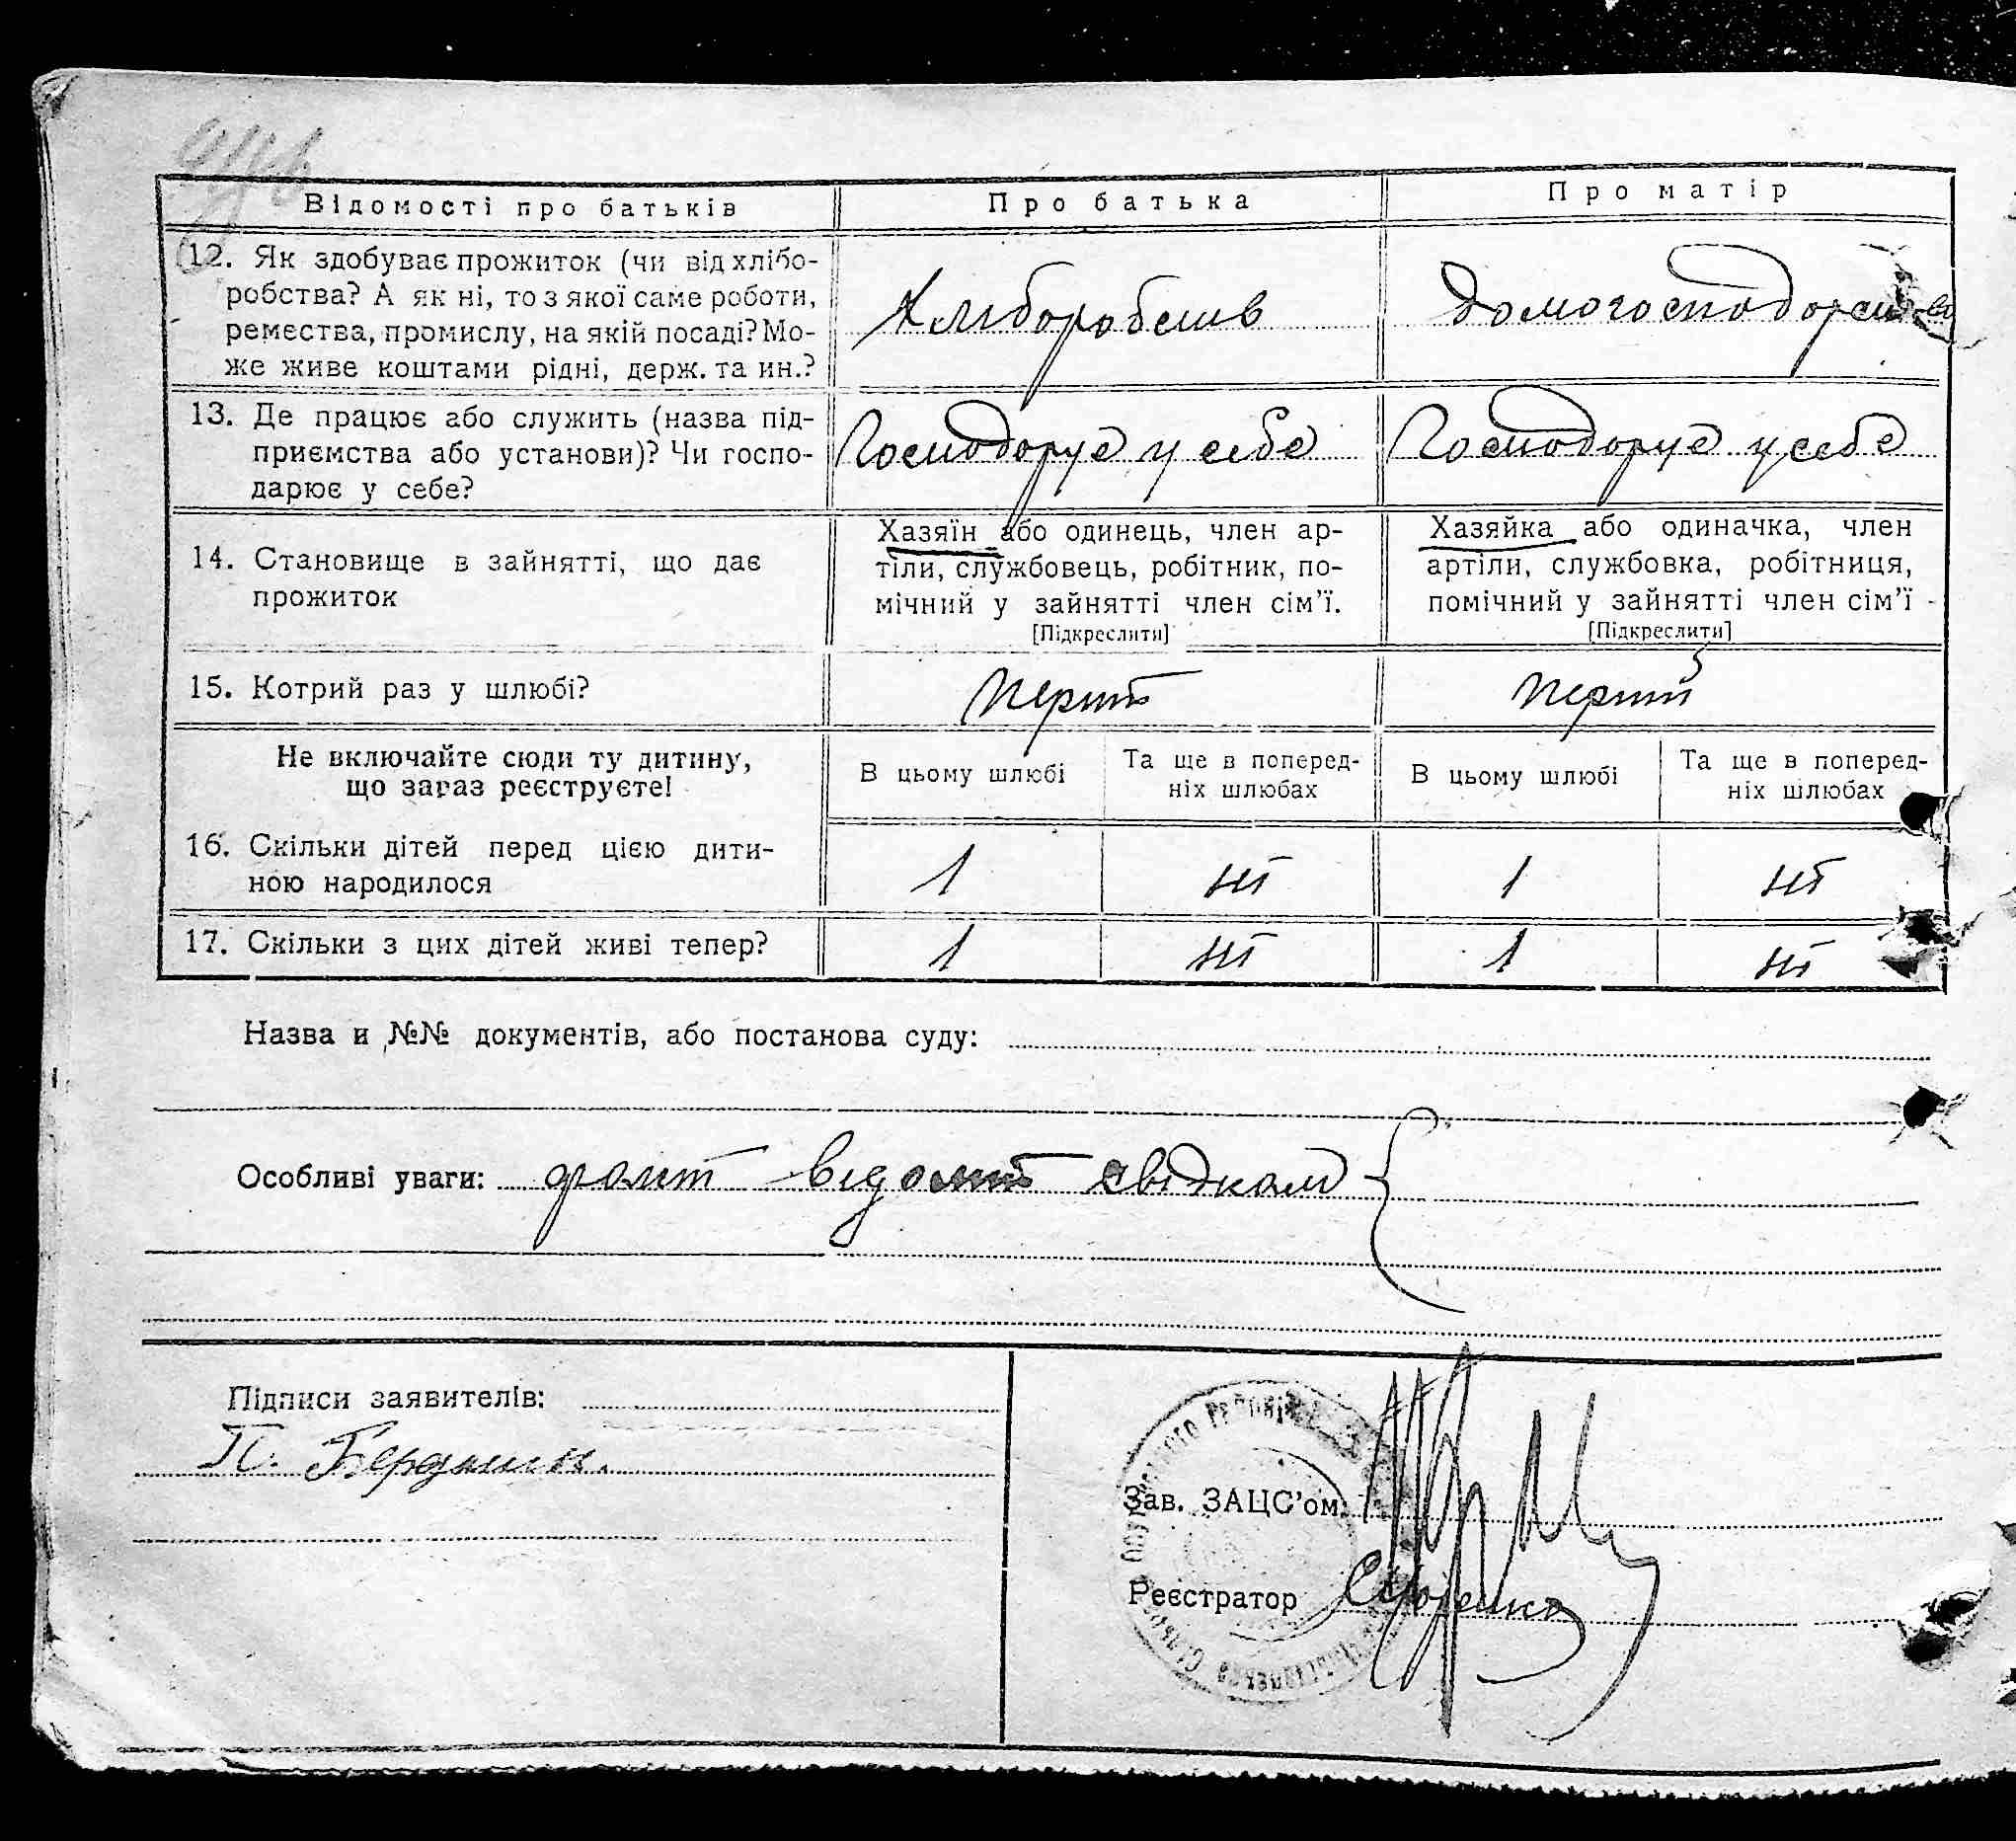 Відомості про батьків
Про батька
Про матір
12. Як здобуває прожиток (чи від хлібо-
робства? А як ні, то з якої саме роботи,
ремества, промислу, на якій посаді? Мо-
же живе коштами рідні, держ. та ин.?
Хліборобств
Домогосподорств
13. Де працює або служить (назва під-
приємства або установи)? Чи госпо-
дарює у себе?
Господорує у себе
Господорує у себе
14. Становище в зайнятті, що дає
прожиток
Хазяїн або одинець, член ар-
тіли, службовець, робітник, по-
мічний у зайнятті член сім’ї.
[Підкреслити]
Хазяйка або одиначка, член
артіли, службовка, робітниця,
помічний у зайнятті член сім’ї -
[Підкреслити]
15. Котрий раз у шлюбі?
Перший
Перший
Не включайте сюди ту дитину,
що зараз реєструєте!
В цьому шлюбі
Та ще в поперед-
ніх шлюбах
В цьому шлюбі
Та ще в поперед-
ніх шлюбах
16. Скільки дітей перед цією дити-
ною народилося
1 ні 1 ні
17. Скільки з цих дітей живі тепер?
1 ні 1 ні
Назва и №№ документів, або постанова суду:
Особливі уваги: факт відомий свідкам
Підписи заявителів:
П.
Зав. ЗАЦС’ом:
Реєстратор